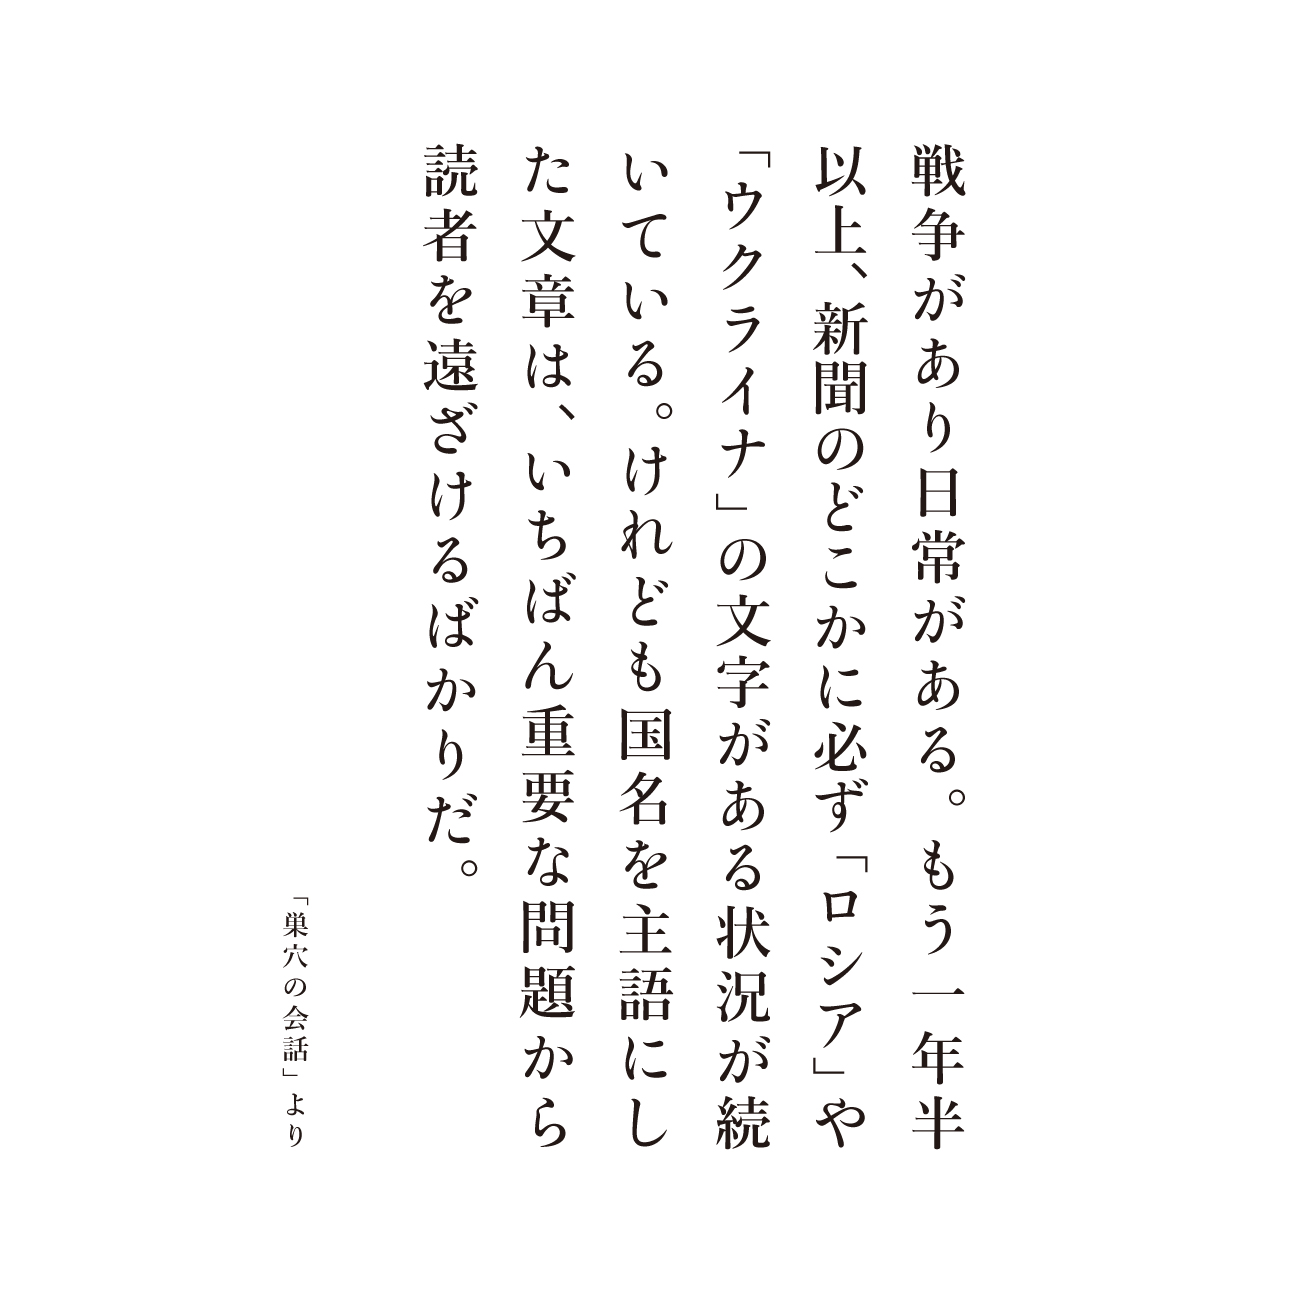 戦争があり日常がある。もう一年半
以上、新聞のどこかに必ず「ロシア」や
「ウクライナ」の文字がある状況が続
いている。けれども国名を主語にし
た文章は、いちばん重要な問題から
読者を遠ざけるばかりだ。
「巣穴の会話」より